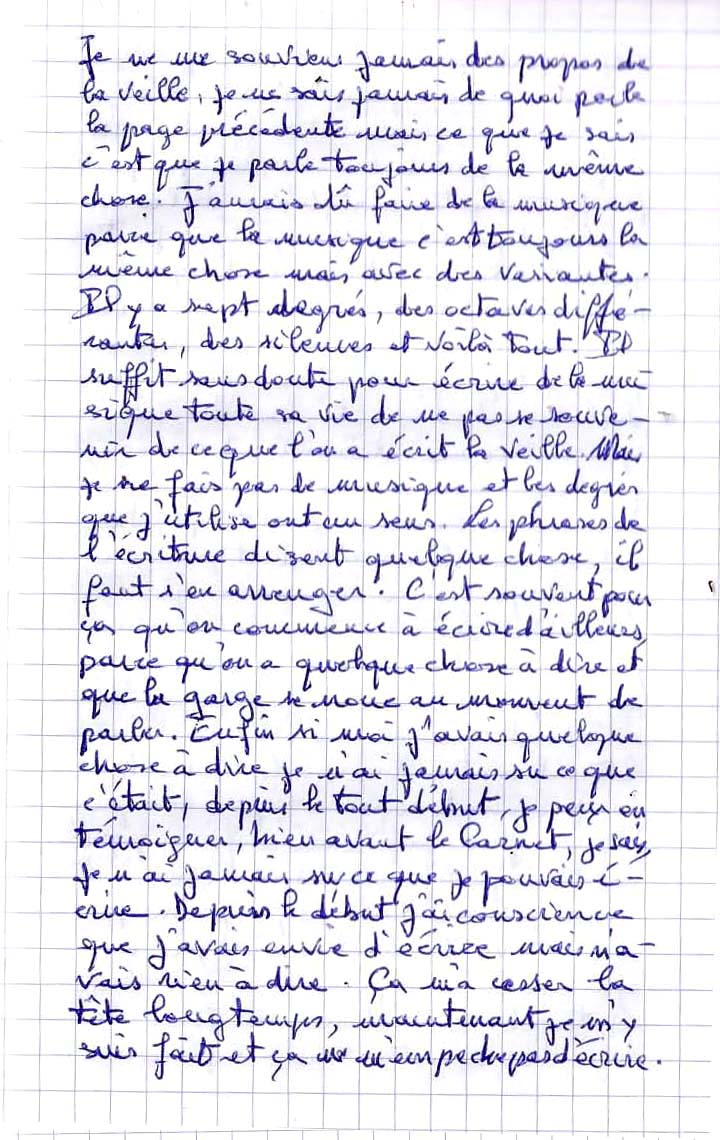 Je ne me souviens jamais des propos de
la veille, je ne sais jamais de quoi parle
la page précédente mais ce que je sais
c'est que je parle toujours de la même
chose. J'aurais dû faire de la musique
parce que la musique c'est toujours la
même chose mais avec des variantes.
Il y a sept degrés, des octaves diffé-
rantes, des silences et voilà tout. Il
suffit sans doute pour écrire de la mu-
sique toute sa vie de ne pas se souve-
nir de ce que l'on a écrit la veille. Mais
je ne fais pas de musique et les degrés
que j'utilise ont un sens. Les phrases de
l'écriture disent quelque chose, il
faut s'en arranger. C'est souvent pour
ça qu'on commence à écrire d'ailleurs,
parce qu'on a quelque chose à dire et
que la gorge se noue au moment de
parler. Enfin si moi j'avais quelque
chose à dire je n'ai jamais su ce que
c'était, depuis le tout début, je peux en
témoigner, bien avant le Carnet, je sais,
je n'ai jamais su ce que je pouvais é-
crire. Depuis le début j'ai conscience
que j'avais envie d'écrire mais n'a-
vais rien à dire. Ça m'a cesser la
tête longtemps, maintenant je m'y
suis fait et ça ne m'empeche pas d'écrire.